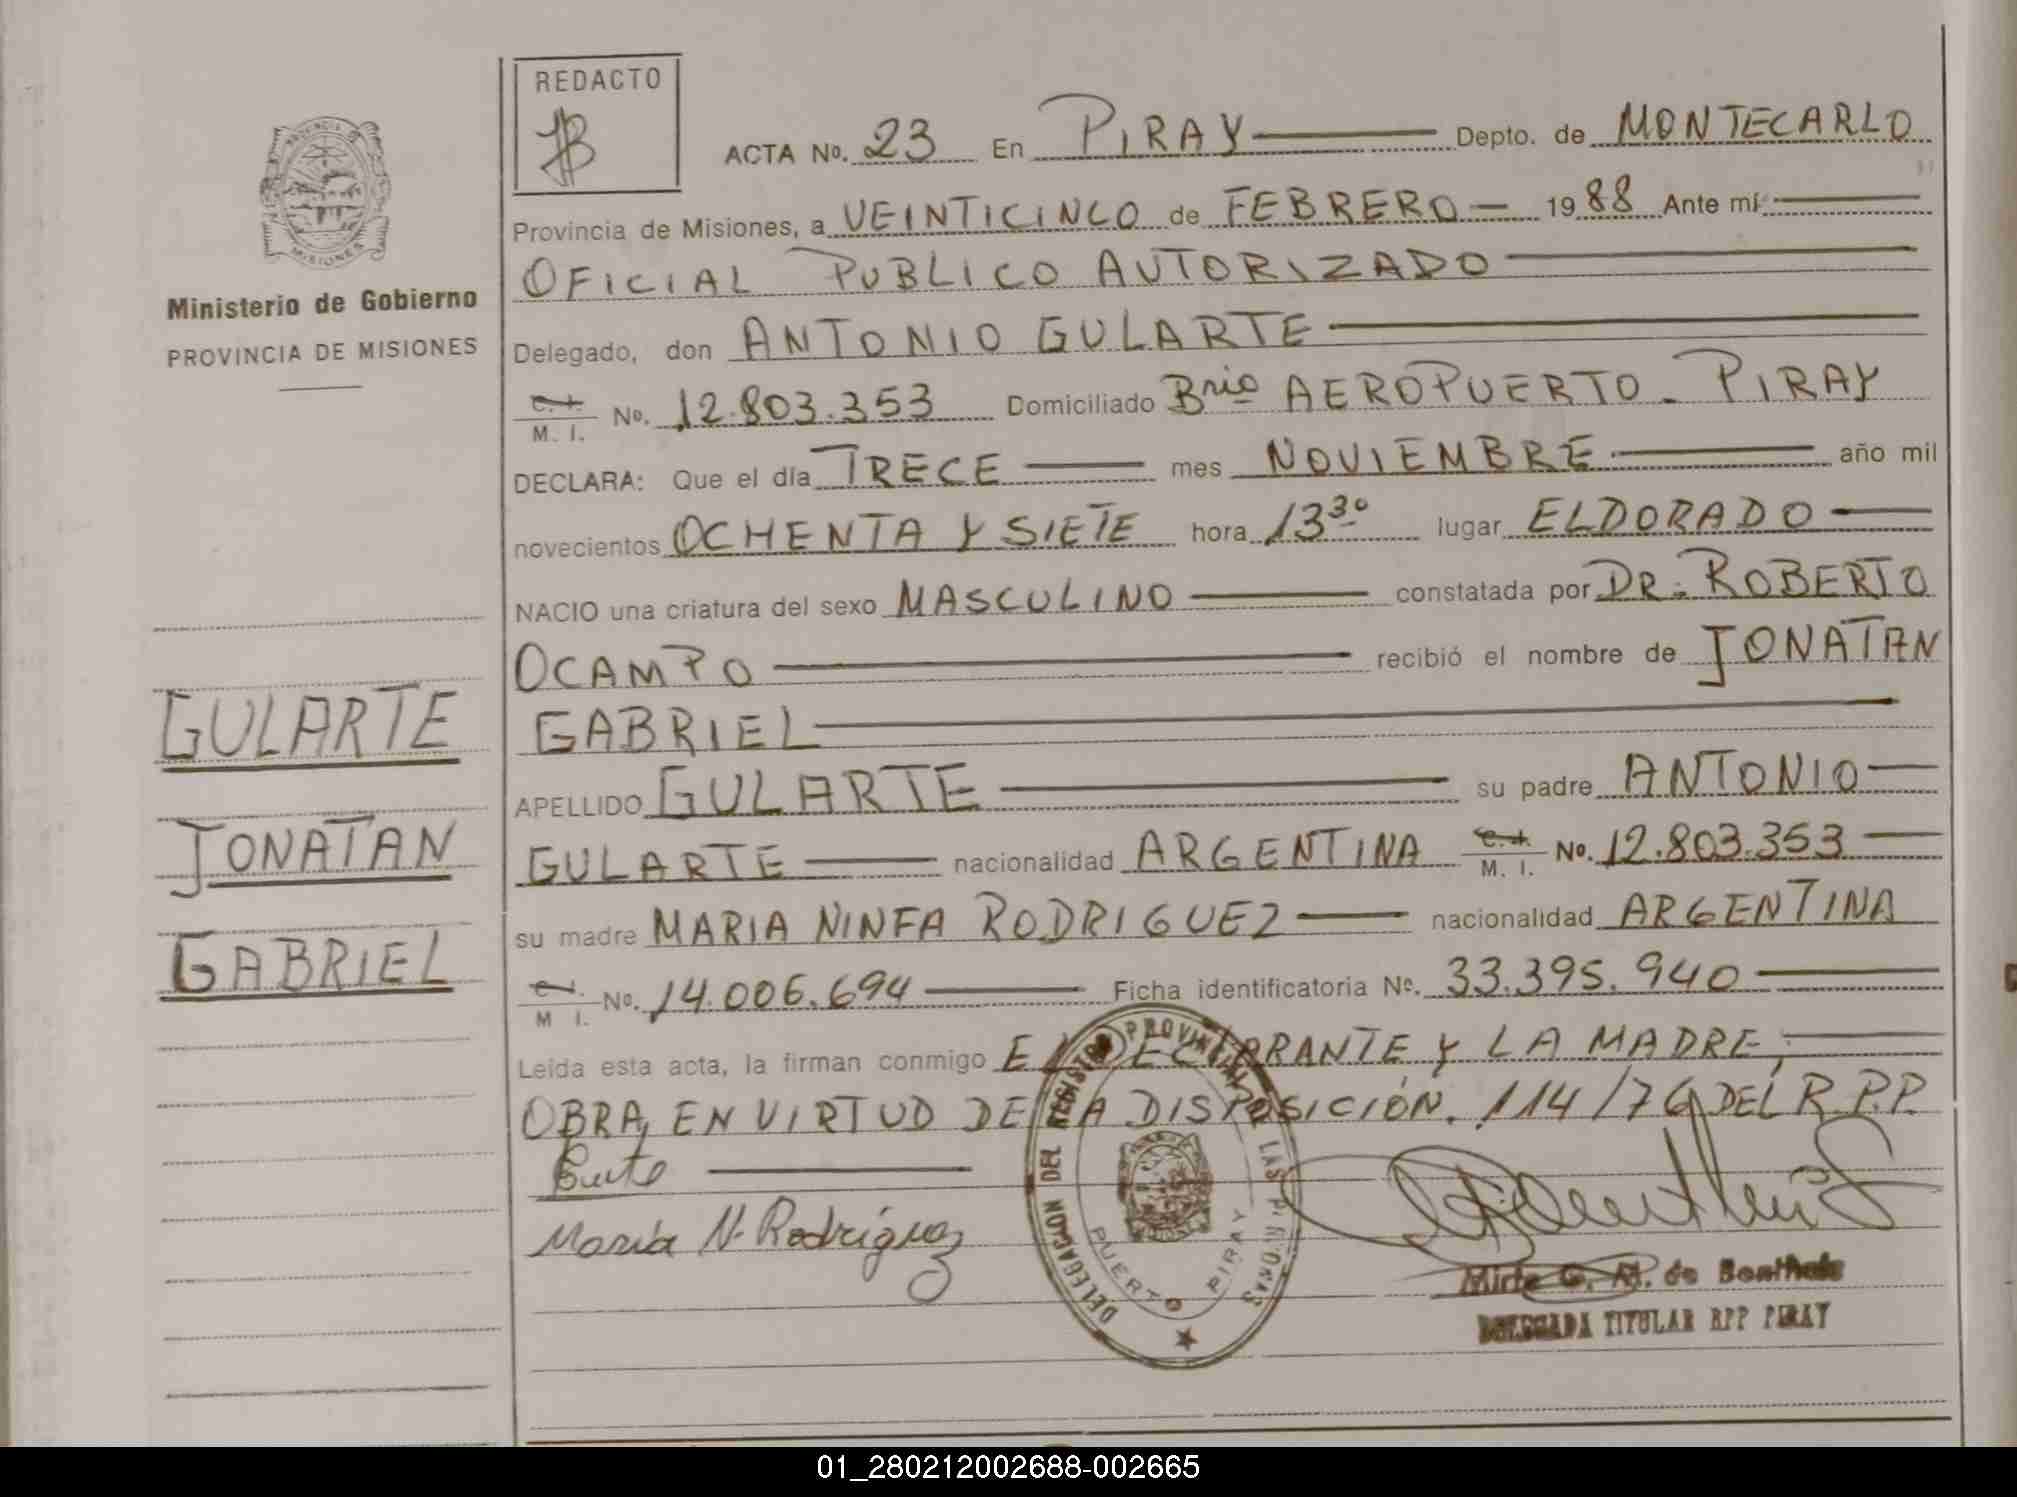 REDACTO
ACTA No. 23 En PIRAY Depto. de MONTECARLO
Provincia de Misiones, a VEINTICINCO de FEBRERO - 1988 Ante mí
OFICIAL PUBLICO AUTORIZADO
Delegado, don ANTONIO GULARTE
C. I. M. I. No. 12.803.353 Domiciliado Brio AEROPUERTO - PIRAY
DECLARA: Que el día TRECE mes NOVIEMBRE año mil
novecientos OCHENTA Y SIETE hora 13 30 lugar ELDORADO
NACIO una criatura del sexo MASCULINO constatada por DR. ROBERTO
OCAMPO recibió el nombre de JONATAN
GABRIEL
APELLIDO GULARTE su padre ANTONIO
GULARTE nacionalidad ARGENTINA C. I. M. I. No. 12.803.353
su madre MARIA NINFA RODRIGUEZ nacionalidad ARGENTINA
C. I. M I. No. 14.006.694 Ficha identificatoria No. 33.395.940
Leída esta acta, la firman conmigo EL DECLARANTE Y LA MADRE,
OBRA, EN VIRTUD DE LA DISPOSICIÓN. 114/76 DEL R.P.P.
Maria N. Rodríguez
Mirta G. M. de
DELEGADA TITULAR RPP PIRAY
DELEGACION DEL REGISTRO PROVINCIAL DE LAS PERSONAS
PUERTO PIRAY
PROVINCIA DE MISIONES
Ministerio de Gobierno
PROVINCIA DE MISIONES
GULARTE
JONATAN
GABRIEL
01_280212002688-002665